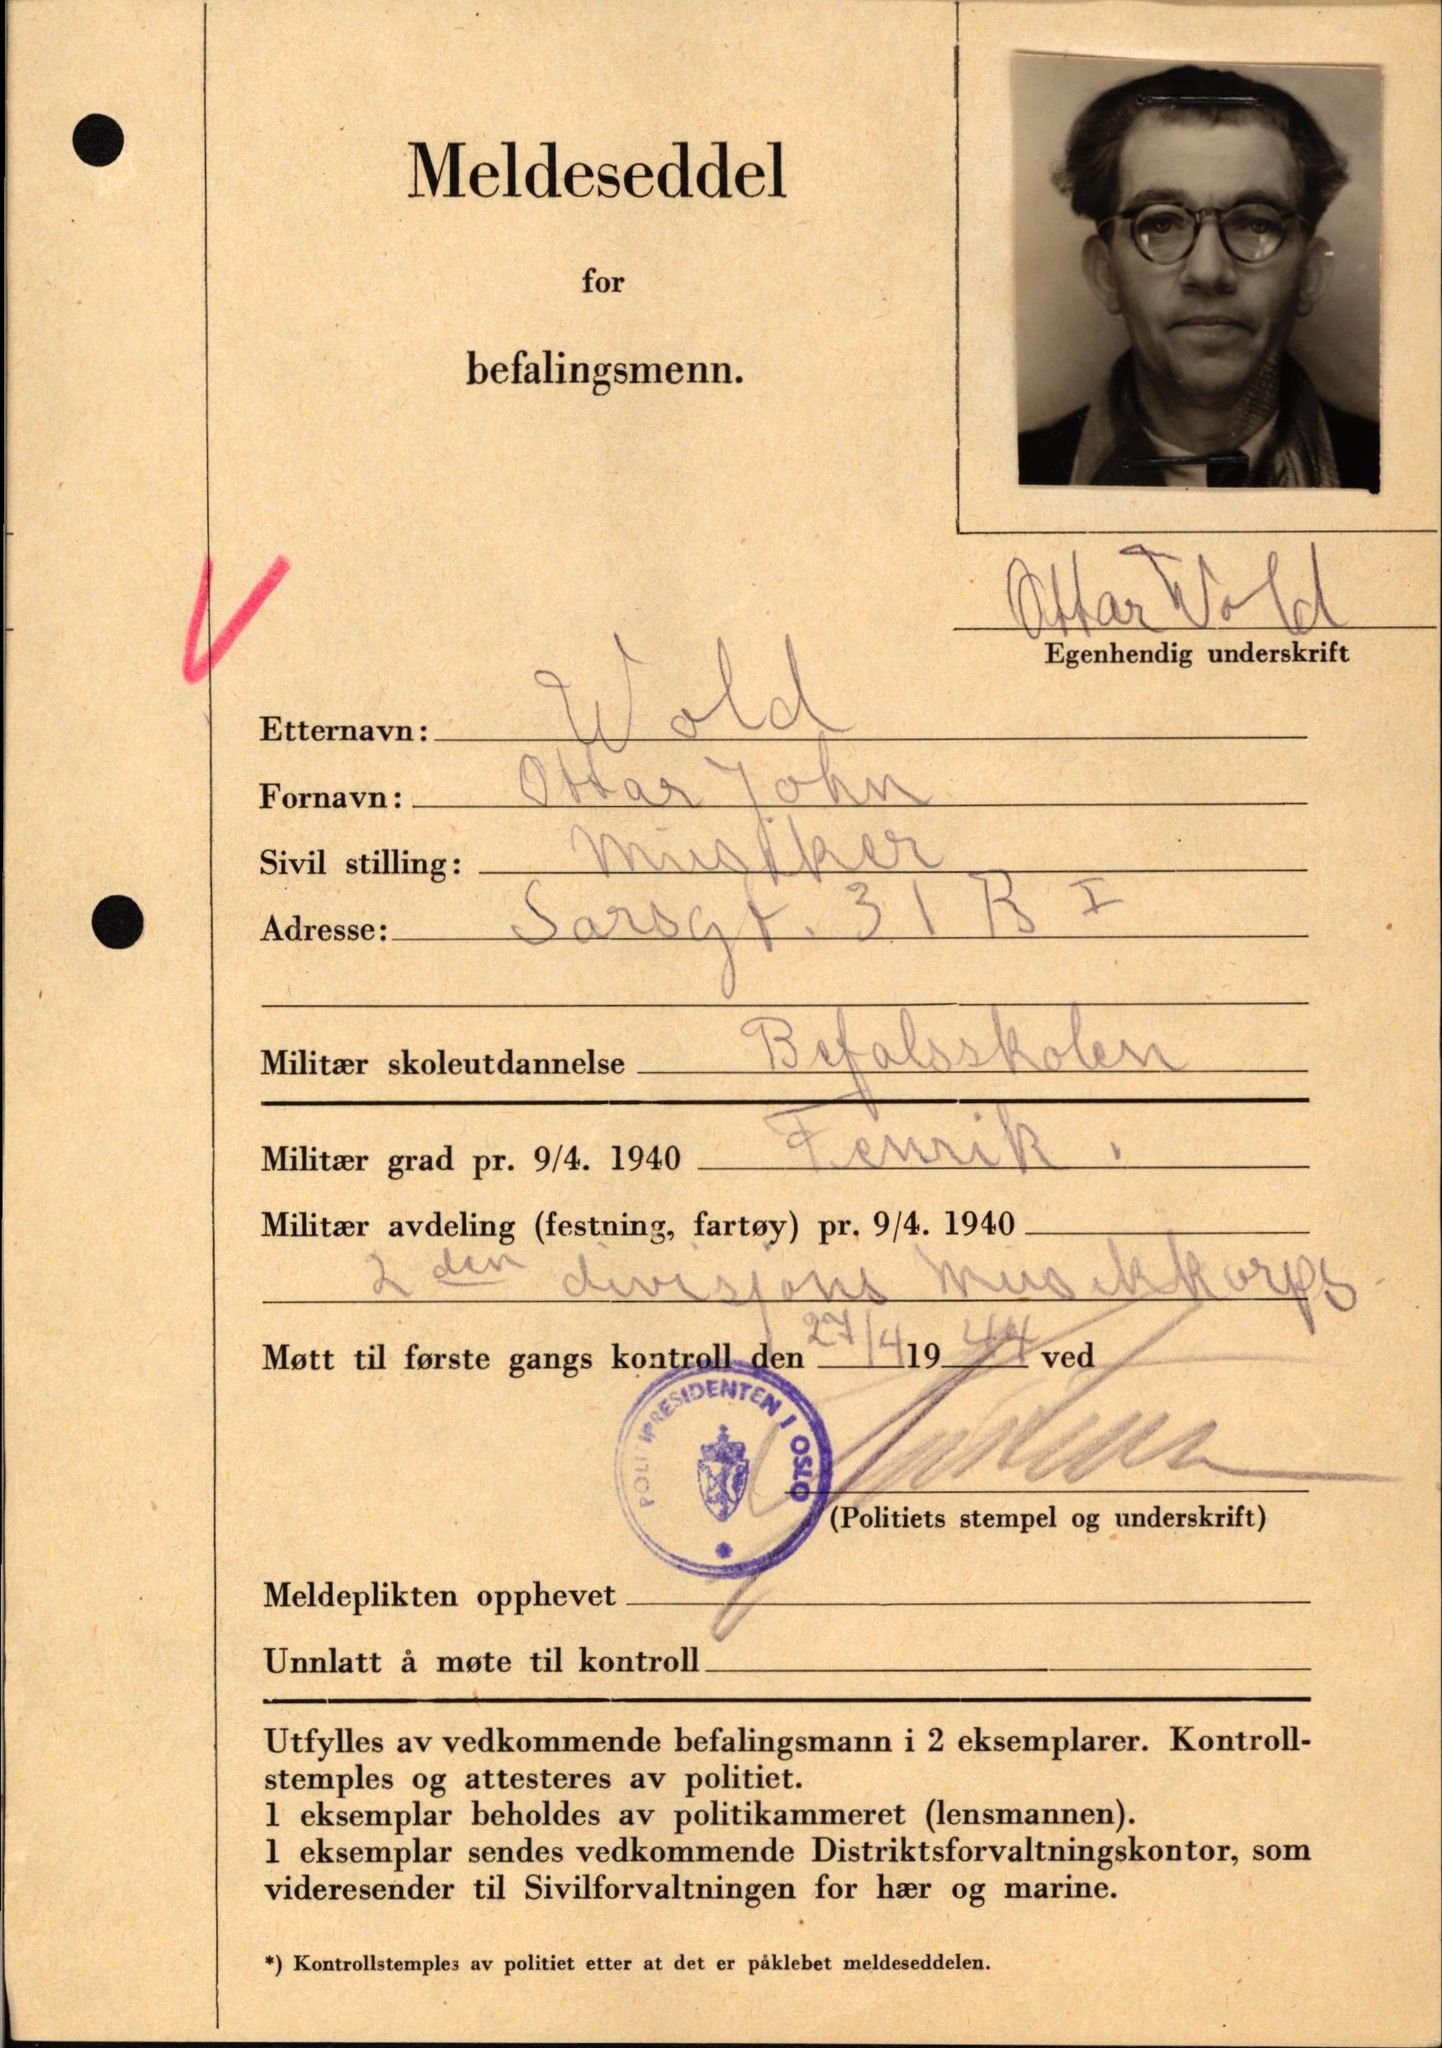 Meldeseddel
for
befalingsmenn.
Ottar Wold
Egenhendig underskrift
Etternavn: Wold
Fornavn: Ottar John
Sivil stilling: Musiker
Adresse: Sarsgt. 31 B I
Militær skoleutdannelse Befalsskolen
Militær grad pr. 9/4. 1940 Fenrik.
Militær avdeling (festning, fartøy) pr. 9/4. 1940
2den divisjons Musikkorps
Møtt til første gangs kontroll den 27/4 19 44 ved
POLITIPRESIDENTEN I OSLO
(Politiets stempel og underskrift)
Meldeplikten opphevet
Unnlatt å møte til kontroll
Utfylles av vedkommende befalingsmann i 2 eksemplarer. Kontroll-
stemples og attesteres av politiet.
1 eksemplar beholdes av politikammeret (lensmannen).
1 eksemplar sendes vedkommende Distriktsforvaltningskontor, som
videresender til Sivilforvaltningen for hær og marine.
*) Kontrollstemples av politiet etter at det er påklebet meldeseddelen.